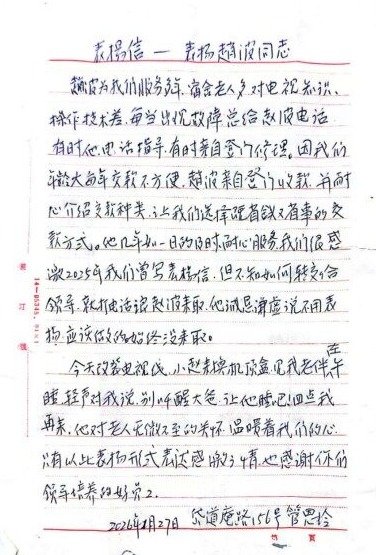 表扬信 — 表扬赵波同志
赵波为我们服务多年，宿舍老人多对电视知识、
操作技术差，每当出现故障总给赵波电话
有时他电话指导，有时亲自登门修理。因我们
年龄大每年交款不方便，赵波亲自登门收款，并耐
心介绍交款种类，让我们选择既省钱又省事的交
款方式。他几年如一日的及时耐心服务我们很感
激2025年我们曾写表扬信，但不知如何转交给
领导，就打电话让赵波来取，他诚恳谦虚说不用表
扬应该做的始终没来取。
今天改装电视线，小赵来换机顶盒见我老伴在午
睡，轻声对我说，别叫醒大爷，让他睡吧！四点我
再来，他对老人无微不至的关怀温暖着我们的心
只有以此表扬形式表达感激之情，也感谢你们
领导培养的好员工。
2026年1月27日 岱道庵路156号 管恩玲